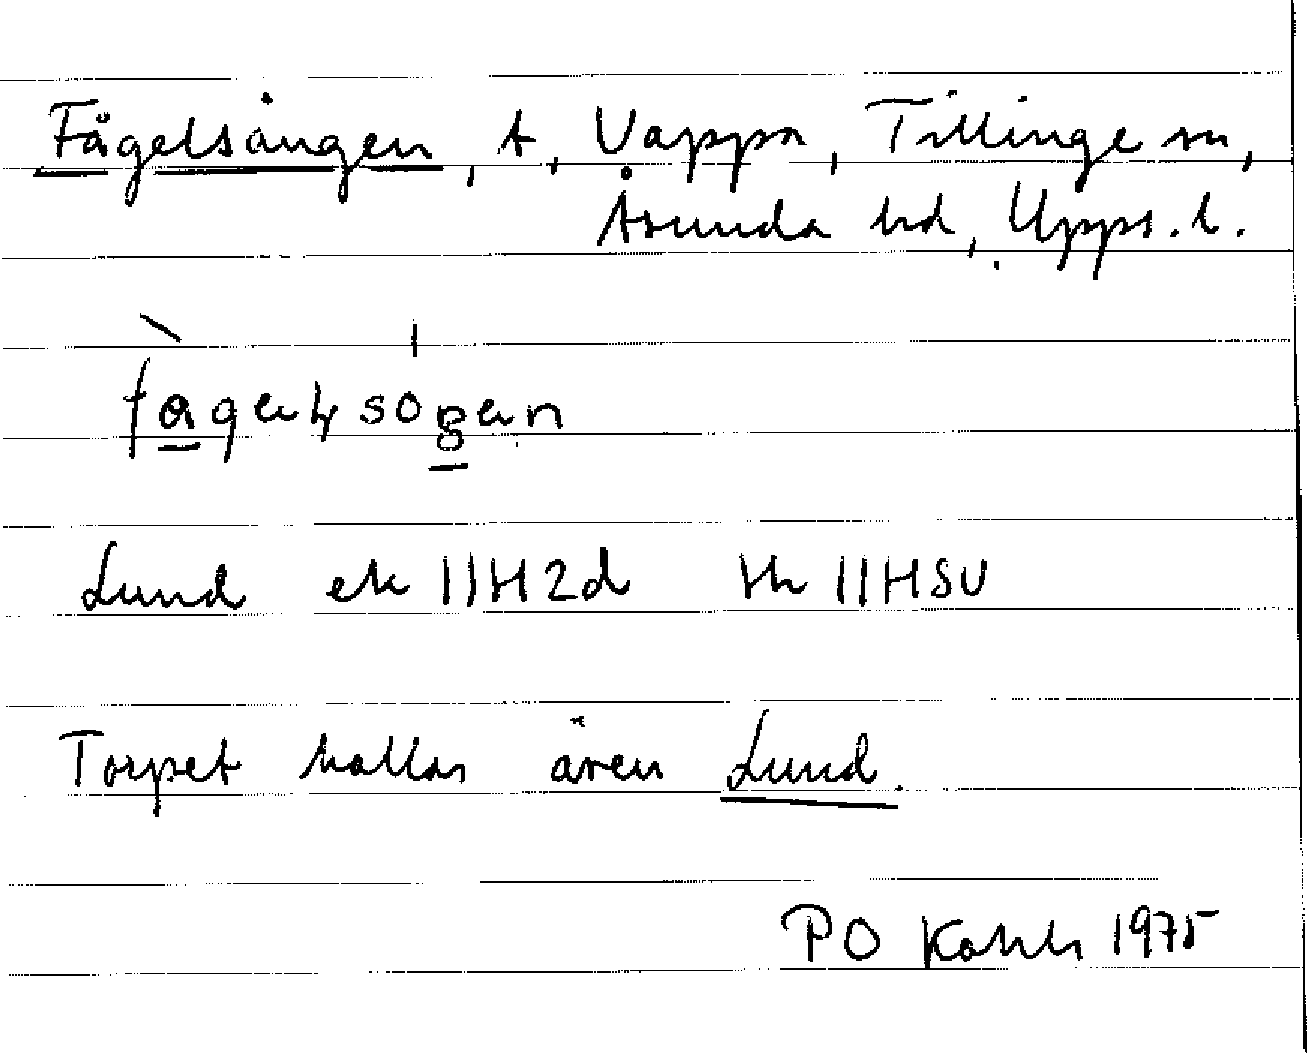 Fågelsången, t, Vappa, Tillinge sn,
Åsunda hd, Upps. l.
Lund ek 11H2d th 11HSV
Torpet kallas även Lund.
PO 1975